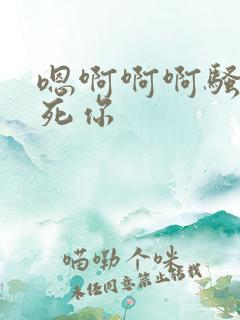 嗯啊啊啊骚
死你
喵嘞个咪
未经同意禁止转载